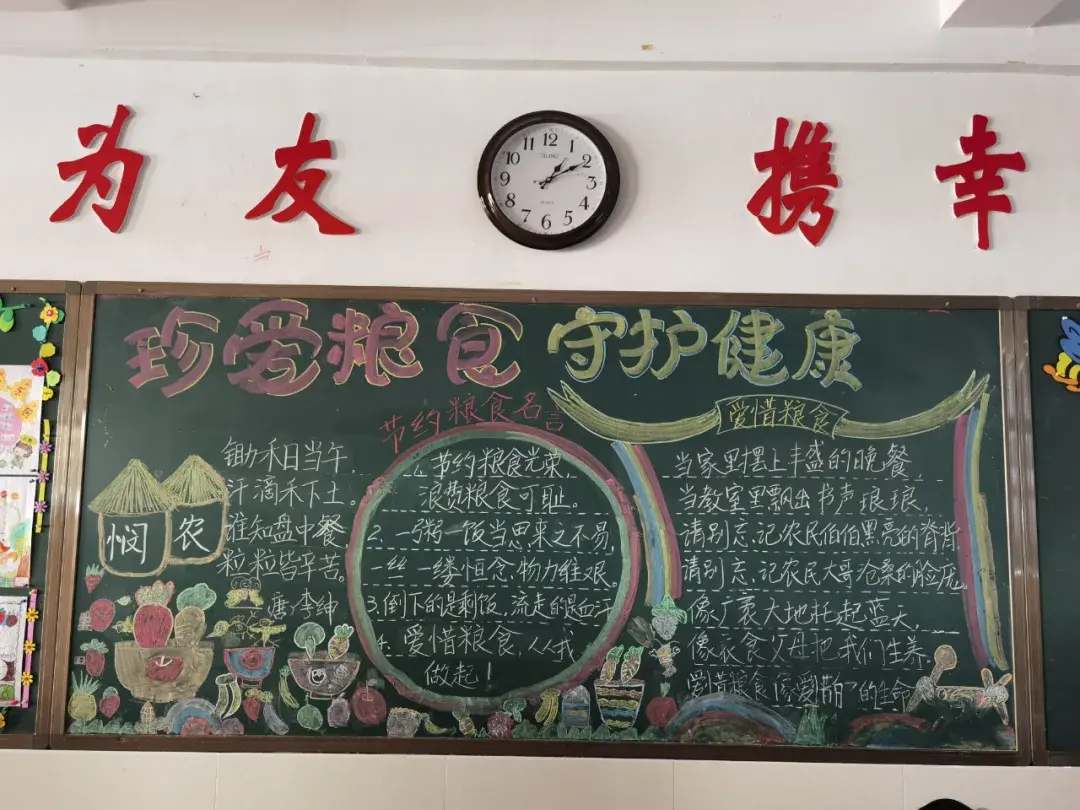 为友携幸
12 1 2 3 4 5 6 7 8 9 10 11
珍爱粮食 守护健康
节约粮食名言
爱惜粮食
悯农
锄禾日当午,
汗滴禾下土。
谁知盘中餐
粒粒皆辛苦。
唐·李绅
1. 节约粮食光荣,
浪费粮食可耻。
2. 一粥一饭当思来之不易,
一丝一缕恒念,物力维艰。
3.倒下的是剩饭,流走的是血汗
4. 爱惜粮食,从我
做起!
当家里摆上丰盛的晚餐,
当教室里飘出书声琅琅,
请别忘记农民伯伯黑亮的脊背
请别忘记农民大哥沧桑的脸庞
像广袤大地托起蓝天,
像衣食父母把我们生养,
爱惜粮食像爱惜 的生命